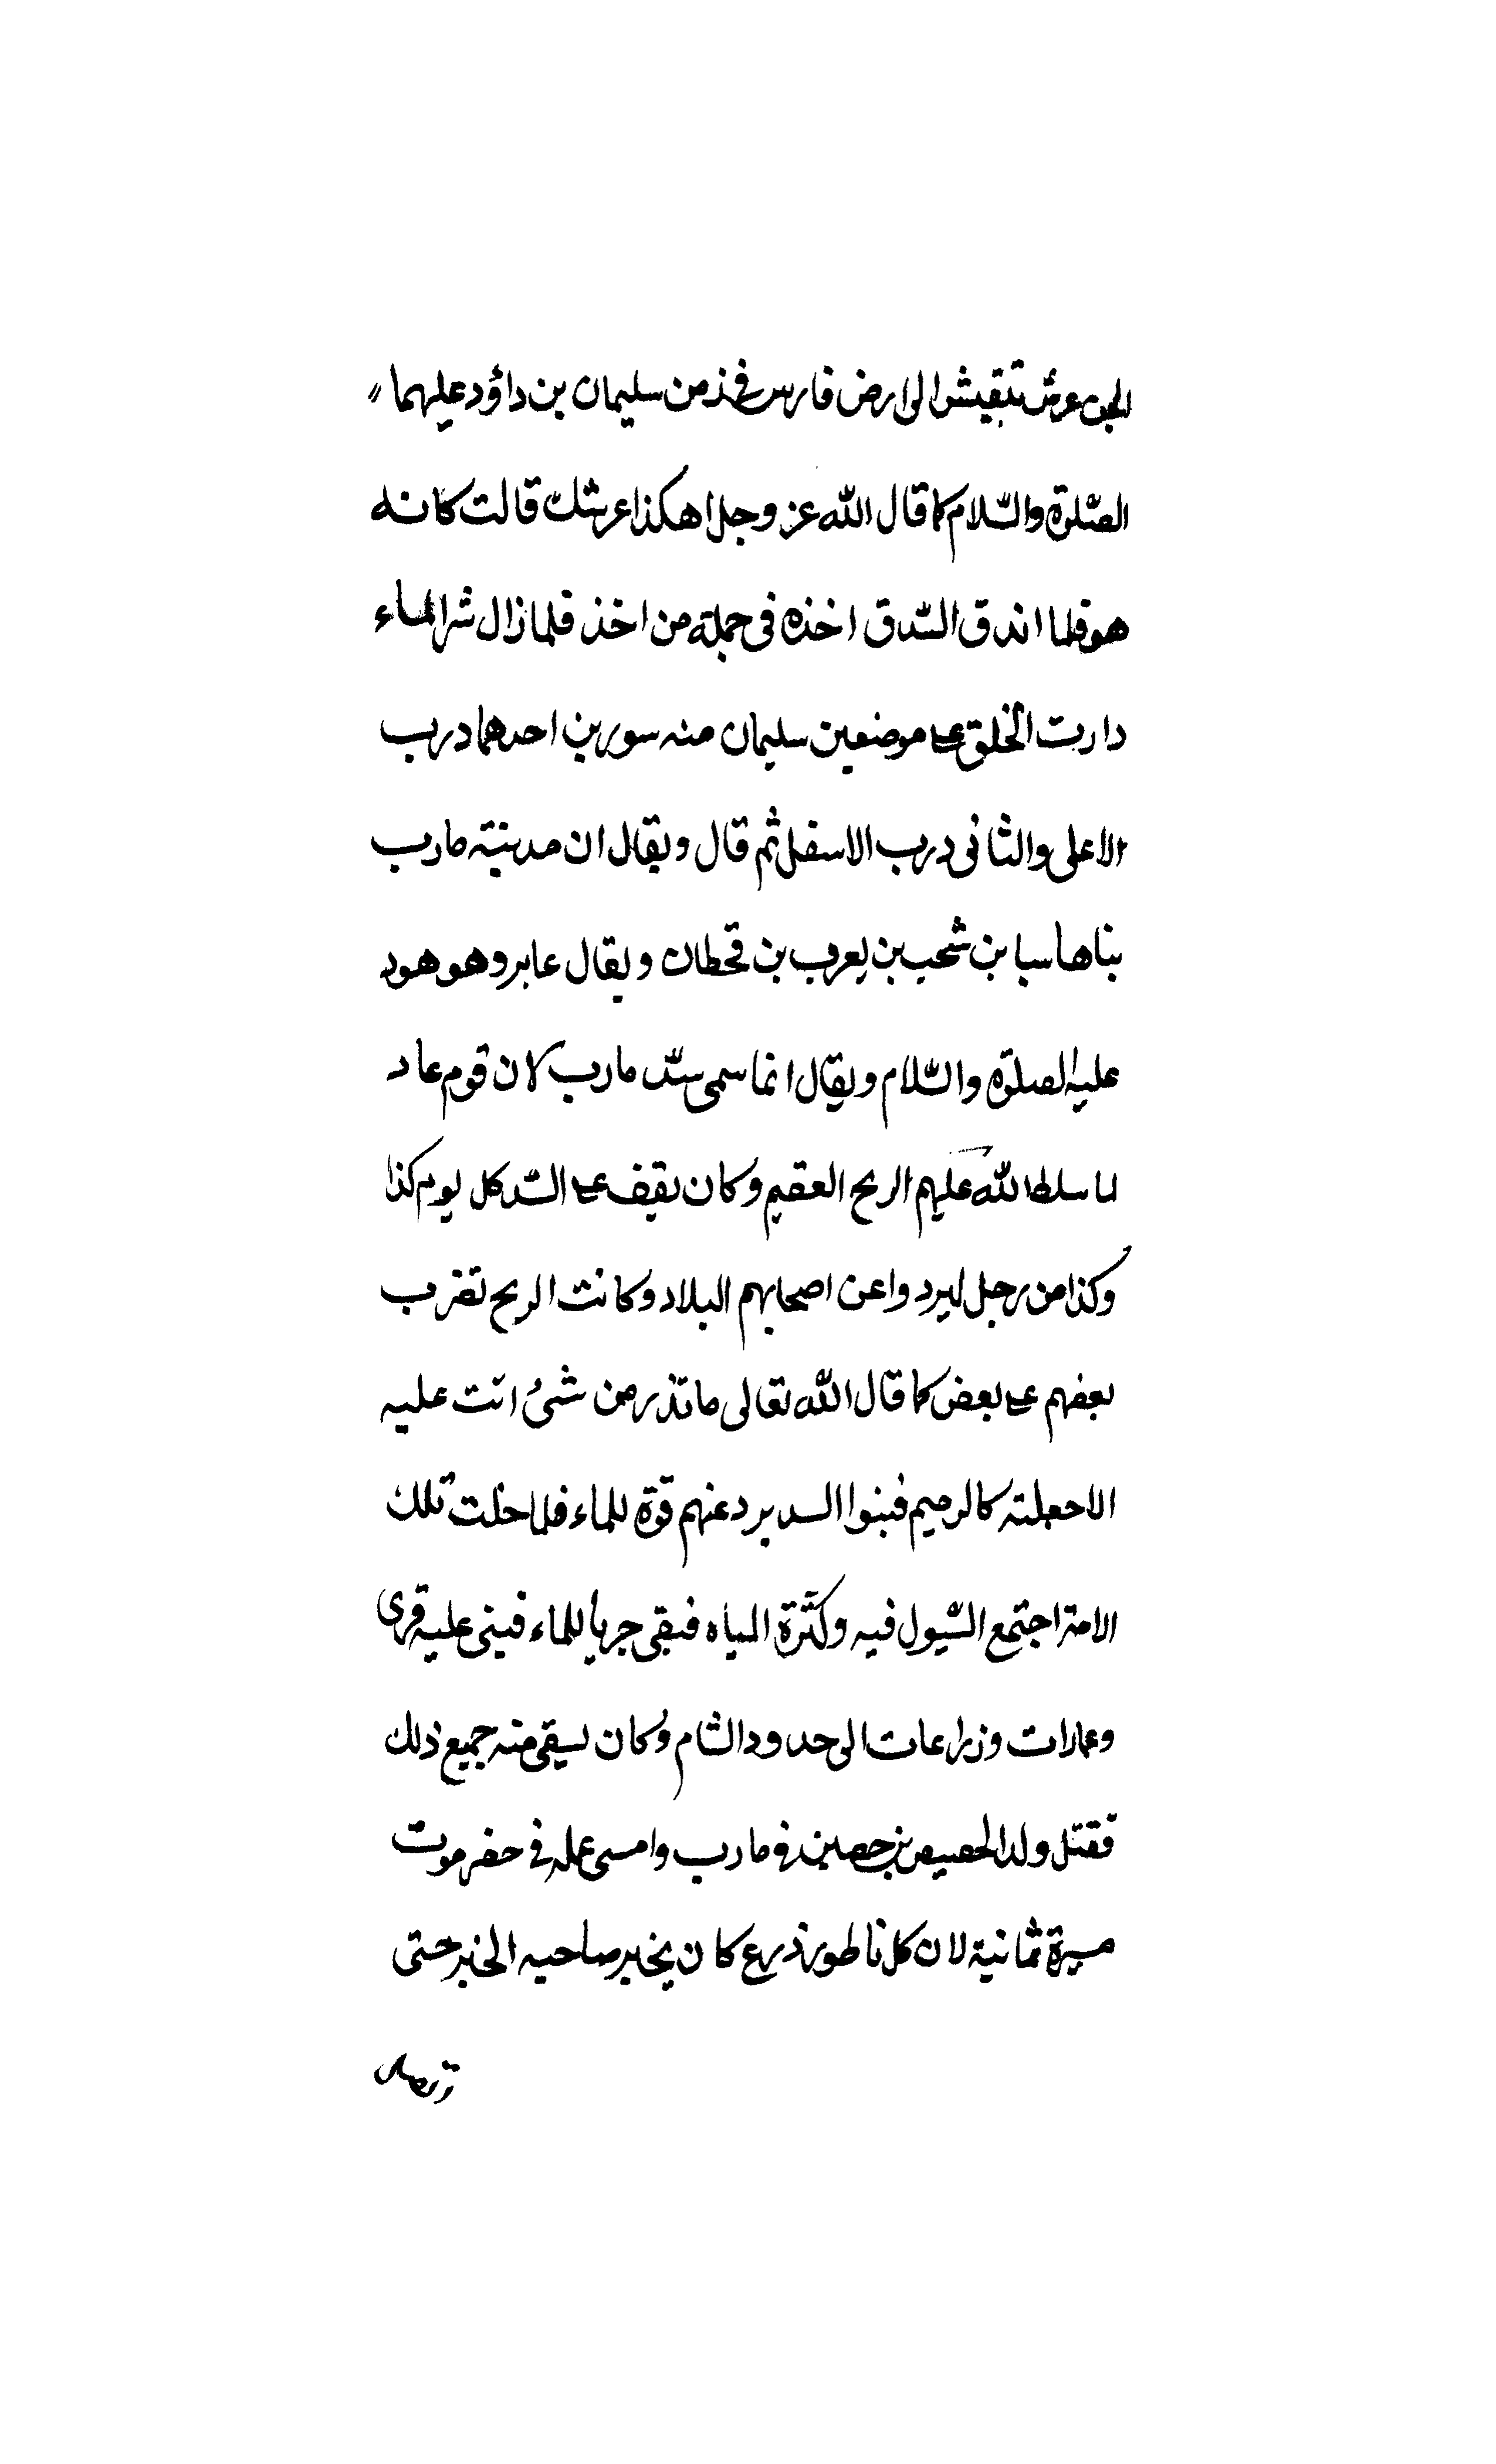 الجن عرش بلقيس الى ارض فارس فى زمن سليمان بن داؤد عليهما
الصّلوة والسّلام كما قال الله عز وجل اهكذا عرشك قالت كانه
هو فلما اندق السّدق اخذه فى جملة من اخذ فلما زال شر الماء
دارت الخلق على موضعين سليمان منه سورين احدهما درب
الاعلى والثانى درب الاسفل ثم قال ويقال ان مدينة مارب
بناها سبا بن شحب بن يعرب بن قحطان ويقال عابر وهو هود
عليه الصلوة والسّلام ويقال انما سمى سدّ مارب لان قوم عاد
لما سلط الله عليهم الريح العقيم وكان يقيف على السّد كل يوم كذا
وكذا من رجل ليردوا عن اصحابهم البلاد وكانت الريح تضرب
بعضهم على بعض كما قال الله تعالى ما تذر من شئ اتت عليه
الا جعلته كالرميم فبنوا السد يرد عنهم قوة للماء فلما خلت تلك
الامة اجتمع السّيول فيه وكثرة المياه فبقى جريا للماء فبنى عليه قرى
وعمارات وزراعات الى حدود الشام وكان يسقى منه جميع ذلك
فقتل ولد الحصيص بن حصين فى مارب وامسى عمله فى حضرموت
ميرة ثمانية لان كل ناطور زرع كان يخبر صاحبه الخبر حتى